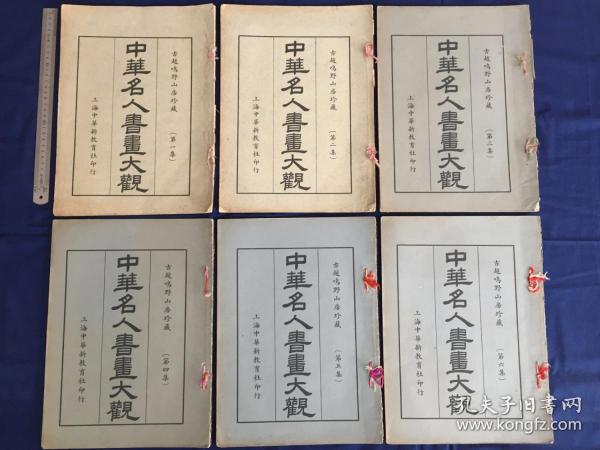 古越鳴野山房珍藏
(第一集)
中華名人書畫大觀
上海中華新教育社印行
古越鳴野山房珍藏
(第二集)
中華名人書畫大觀
上海中華新教育社印行
古越鳴野山房珍藏
(第三集)
中華名人書畫大觀
上海中華新教育社印行
古越鳴野山房珍藏
(第四集)
中華名人書畫大觀
上海中華新教育社印行
古越鳴野山房珍藏
(第五集)
中華名人書畫大觀
上海中華新教育社印行
古越鳴野山房珍藏
(第六集)
中華名人書畫大觀
上海中華新教育社印行
孔夫子旧书网
kongfz.com